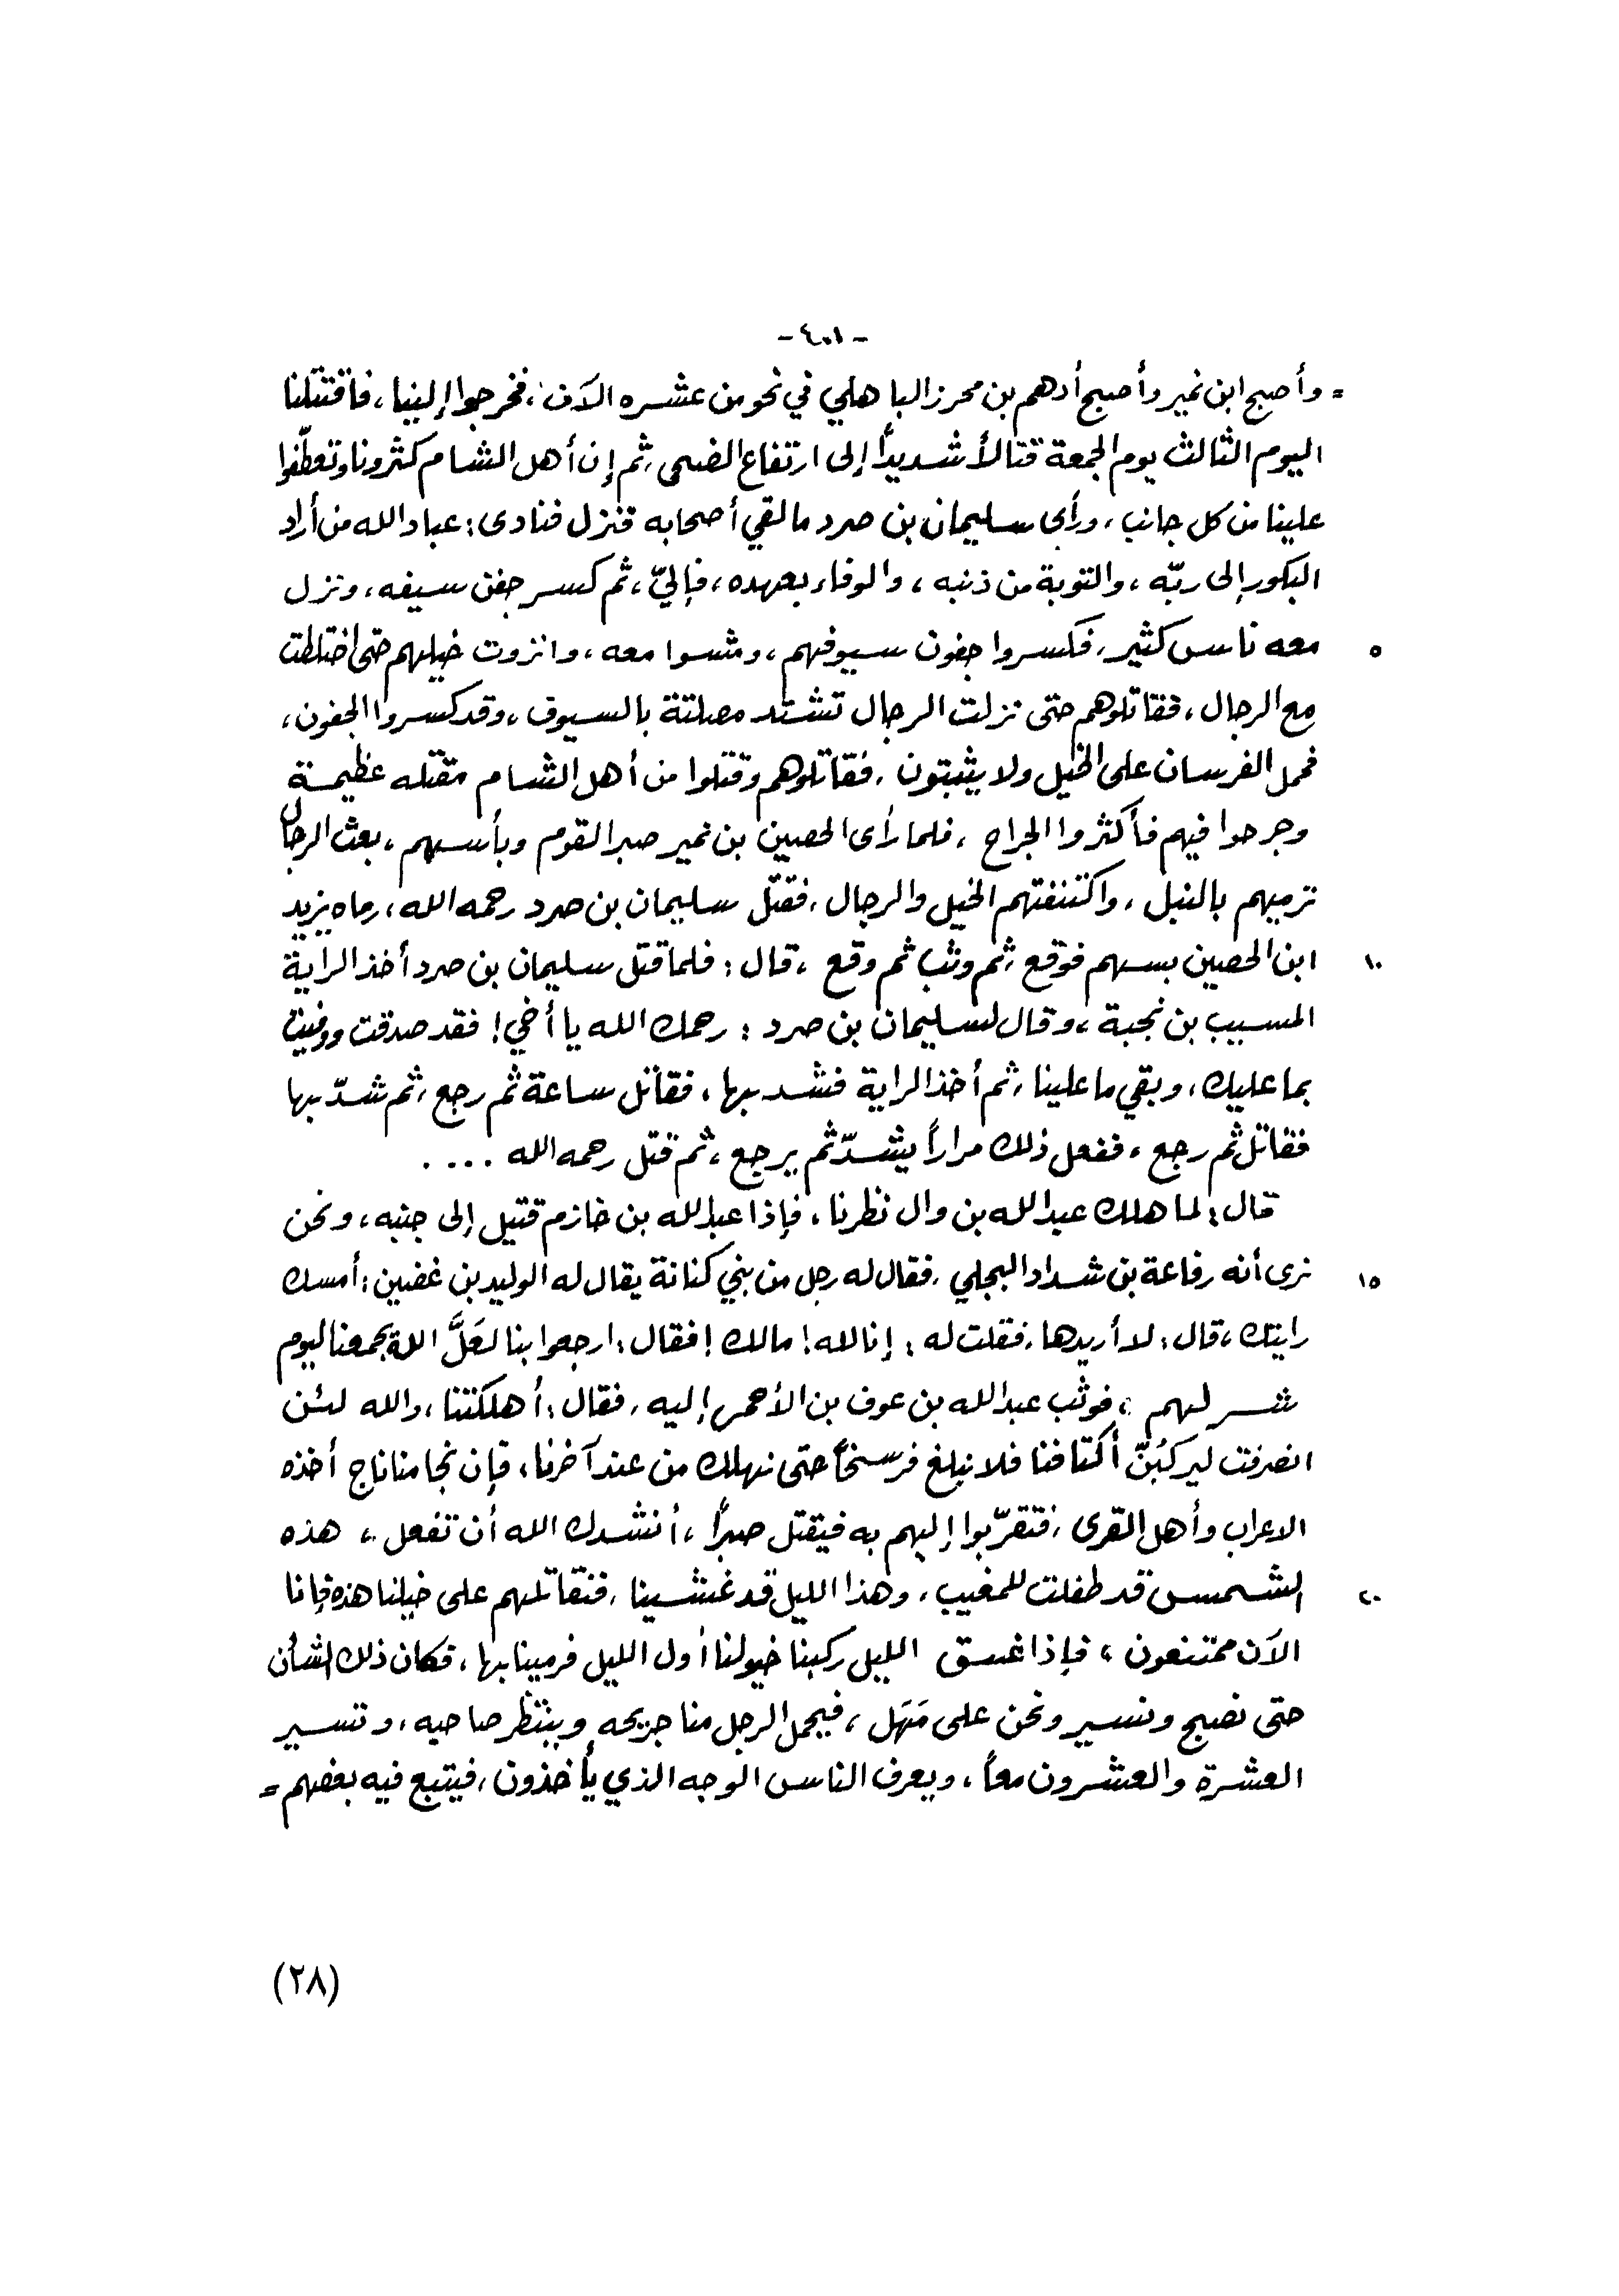 - ٤٠١ -
= وأصبح ابن نمير وأصبح أدهم بن محرز الباهلي في نحو من عشره الآف، فخرجوا إلينا، فاقتتلنا
اليوم الثالث يوم الجمعة قتالاً شديداً إلى ارتفاع الضحى، ثم إن أهل الشام كثرونا وتعطّفوا
علينا من كل جانب، ورأى سليمان بن صرد ما لقي أصحابه فنزل فنادى: عباد الله من أراد
البكور إلى ربّه، والتوبة من ذنبه، والوفاء بعهده، فإليّ، ثم كسر جفن سيفه، ونزل
٥ معه ناس كثير، فكسروا جفون سيوفهم، ومشوا معه، وانزوت خيلهم حتى اختلطت
مع الرجال، فقاتلوهم حتى نزلت الرجال تشتد مصلتة بالسيوف، وقد كسروا الجفون،
فحمل الفرسان على الخيل ولا يثبتون، فقاتلوهم وقتلوا من أهل الشام مقتله عظيمة
وجرحوا فيهم فأكثروا الجراح، فلما رأى الحصين بن نمير صبر القوم وبأسهم، بعث الرجال
ترميهم بالنبل، واكتنفتهم الخيل والرجال، فقتل سليمان بن صرد رحمه الله، رماه يزيد
١٠ ابن الحصين بسهم فوقع، ثم وثب ثم وقع، قال: فلما قتل سليمان بن صرد أخذ الراية
المسيب بن نجبة، وقال لسليمان بن صرد: رحمك الله يا أخي! فقد صدقت ووفيت
بما عليك، وبقي ما علينا، ثم أخذ الراية فشد بها، فقاتل ساعة ثم رجع، ثم شدّ بها
فقاتل ثم رجع، ففعل ذلك مراراً يشدّ ثم يرجع، ثم قتل رحمه الله ....
قال: لما هلك عبد الله بن وال نظرنا، فإذا عبد الله بن خازم قتيل إلى جنبه، ونحن
١٥ نرى أنه رفاعة بن شداد البجلي، فقال له رجل من بني كنانة يقال له الوليد بن غضين: أمسك
رايتك، قال: لا أريدها، فقلت له: إنا لله! مالك! فقال: ارجعوا بنا لعَلَّ الله يجمعنا ليوم
شر لهم، فوثب عبد الله بن عوف بن الأحمر إليه، فقال: أهلكتنا، والله لئن
انصرفت ليركبُنّ أكتافنا فلا نبلغ فرسخاً حتى نهلك من عند آخرنا، فإن نجا منا ناج أخذه
الاعراب وأهل القرى، فتقرّبوا إليهم به فيقتل صبراً، أنشدك الله أن تفعل، هذه
٢٠ الشمس قد طفلت للمغيب، وهذا الليل قد غشينا، فنقاتلهم على خيلنا هذه فإنا
الآن ممتنعون، فإذا غسق الليل ركبنا خيولنا أول الليل فرمينا بها، فكان ذلك الشأن
حتى نصبح ونسير ونحن على مَهَل، فيحمل الرجل منا جريحه وينتظر صاحبه، وتسير
العشرة والعشرون معاً، ويعرف الناس الوجه الذي يأخذون، فيتبع فيه بعضهم =
(٢٨)